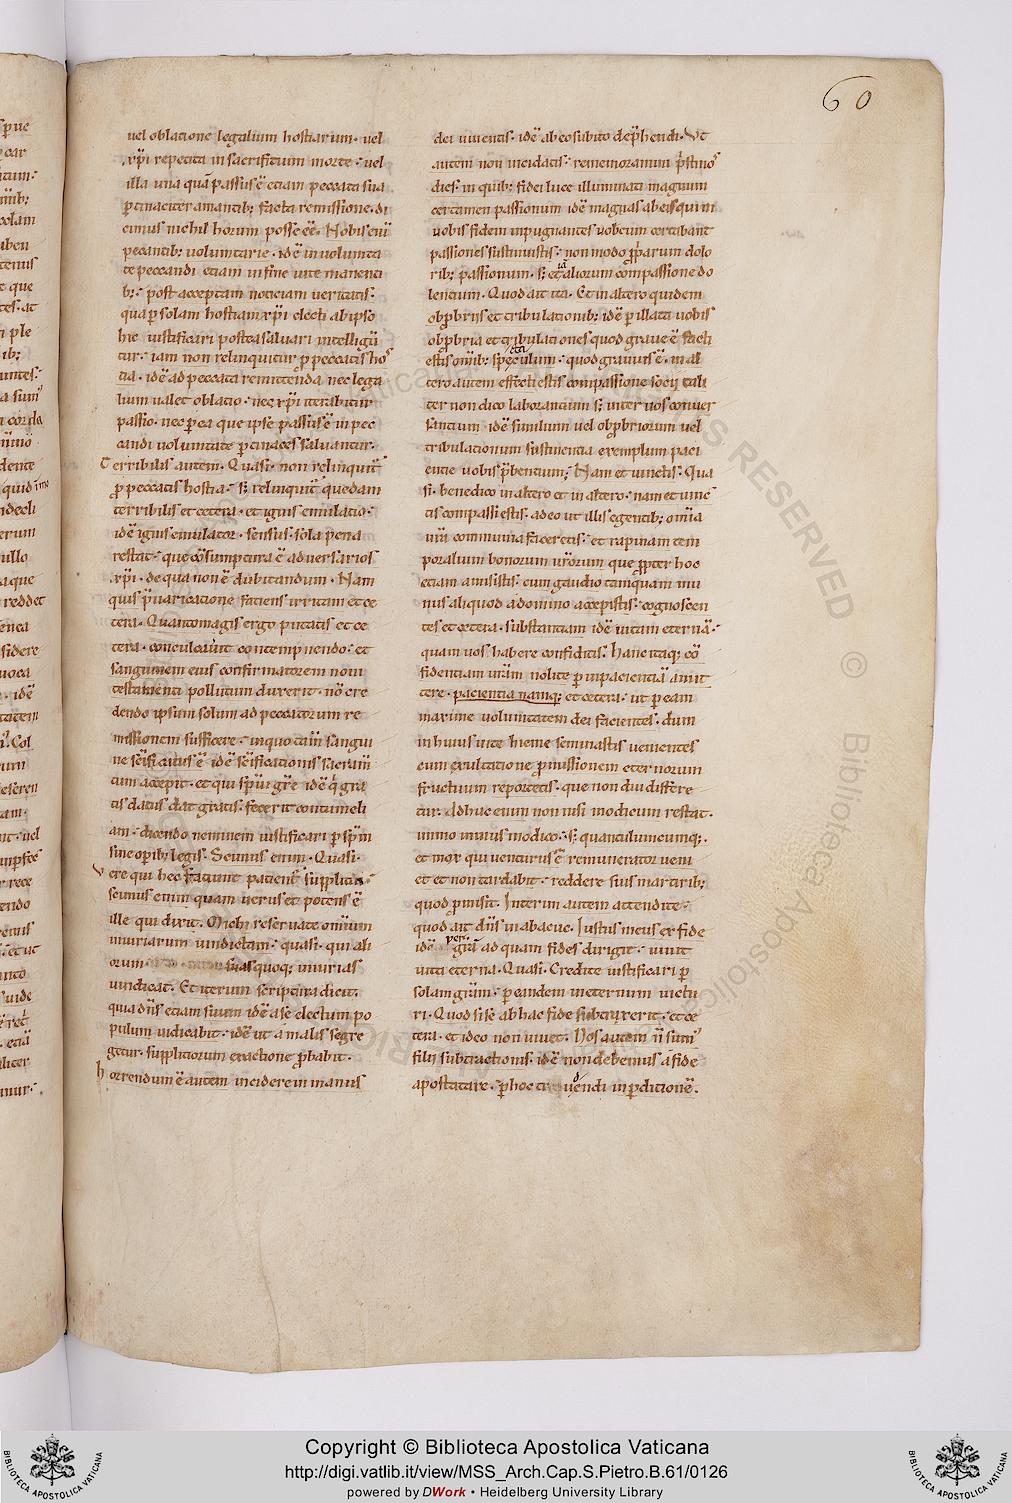 60
uel oblatione legalium hostiarum· uel
xp̄i repetita in sacrifitium morte· uel
illa una quā passus ē etiam peccata sua
ꝑtinaciter amantib; facta remissione· di
cimus nichil horum posse eē. Nobis eni
peccantib; uoluntarie· idē in uolunta
te peccandi etiam in fine uite manenti
b;· post acceptam noticiam ueritatis·
qua ꝑ solam hostiam xp̄i electi ab ipso
hic iustificari postea saluari intelligū
tur· iam non relinquitur ꝓ peccatis hos
tia· idē ad peccata remittenda nec lega
lium ualet oblatio· nec xp̄i iterabitur
passio· nec ꝑ ea que ipse passus ē in pec
candi uoluntate ꝑtinaces saluantur·
Terribilis autem· Quasi· non relinquit̄
ꝓ peccatis hostia· s; relinquit̄ quedam
terribilis et cetera· et ignis emulatio·
idē ignis emulator· sensus· sola pena
restat· que cōsumptura ē aduersarios
xp̄i· de qua non ē dubitandum· Nam
quis p̄uaricatione faciens irritam et ce
tera· Quanto magis ergo putatis et ce
tera· conculcauit contempnendo· et
sanguinem eius confirmatorem noui
testamenti pollutum duxerit· nō cre
dendo ipsum solum ad peccatorum re
missionem sufficere· in quo tam̄ sangui
ne sc̄ificatus ē idē sc̄ificationis sacram̄
tum accepit· et qui sp̄ui gr̄e idē q̄ gra
tis datis dat gratis· fecerit contumeli
am· dicendo neminem iustificari ꝑ sp̄m
sine operib; legis· Scimus enim· Quasi·
Vere qui hec faciunt patient̄ supplicia·
scimus enim quam uerus et potens ē
ille qui dixit. Michi reseruate omnium
iniuriarum uindictam· quasi· qui ali
orum suas quoq; iniurias
uindicat. Et iterum scriptura dicit.
quia dn̄s etiam suum idē a se electum po
pulum iudicabit· idē ut a malis segre
getur· suppliciorum exactione ꝓbabit·
Horrendum ē autem incidere in manus
dei uiuentis· idē ab eo subito dep̄hendi· Vt
autem non incidatis· rememoramini p̄stinos
dies· in quib; fidei luce illuminati magnum
certamen passionum idē magnas ab eis qui in
uobis fidem inpugnantes uobcum certabant
passiones sustinuistis· non modo ꝓp̄arum dolo
rib; passionum· s; etiā aliorum compassione do
lentium· Quod ait ita· Et in altero quidem
obꝓbriis et tribulationib; idē ꝑ illata uobis
obꝓbria et tribulationes quod graue ē facti
estis omib; spectaculum· quod grauius ē· in al
tero autem effecti estis compassione socii tali
ter non dico laborantium s; inter uos conuer
santium idē similium uel obꝓbriorum uel
tribulationum sustinentia exemplum paci
entie uobis p̄bentium; Nam et uinctis· Qua
si· benedico in altero et in altero· nam et uinc
tis compassi estis· adeo ut illis egentib; om̄ia
ur̄a communia faceretis· et rapinam tem
poralium bonorum ur̄orum que ꝓpter hoc
etiam amisistis· cum gaudio tamquam mu
nus aliquod a domino accepistis· cognoscen
tes et cetera· substantiam idē uitam eternā·
quam uos habere confiditis· hanc itaq; cō
fidentiam ur̄am nolite ꝑ inpacientiā amit
tere· pacientia namq; et cetera· ut ꝑ eam
maxime uoluntatem dei facientes· dum
in huius uite hieme seminastis uenientes
cum exultatione ꝓmissionem eternorum
fructuum reportetis· que non diu differe
tur. Adhuc enim non nisi modicum restat·
immo minus modico· s; quantulumcumq;.
et mox qui uenturus ē remunerator ueni
et et non tardabit· reddere suis martirib;
quod ꝓmisit. Interim autem attendite·
quod ait dn̄s in abacuc. Iustus meus ex fide
idē per grā ad quam fides dirigit· uiuit
uita eterna· Quasi· Credite iustificari ꝑ
solam grām· ꝑ eandem in eternum uictu
ri· Quod si se ab hac fide subtraxerit· et ce
tera· et ideo non uiuet. Nos autem n̄ sum̄
filii subtractionis· idē non debemus a fide
apostatare· ꝑ hoc di in ꝑditionē.
Copyright © Biblioteca Apostolica Vaticana
http://digi.vatlib.it/view/MSS_Arch.Cap.S.Pietro.B.61/0126
powered by DWork • Heidelberg University Library